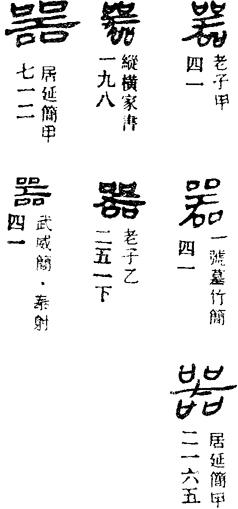 器
老子甲
四一
器
一號墓竹簡
四一
器
居延簡甲
二一六五
器
縱橫家書
一九八
器
老子乙
二五一下
器
居延簡甲
七一二
器
武威簡·泰射
四一